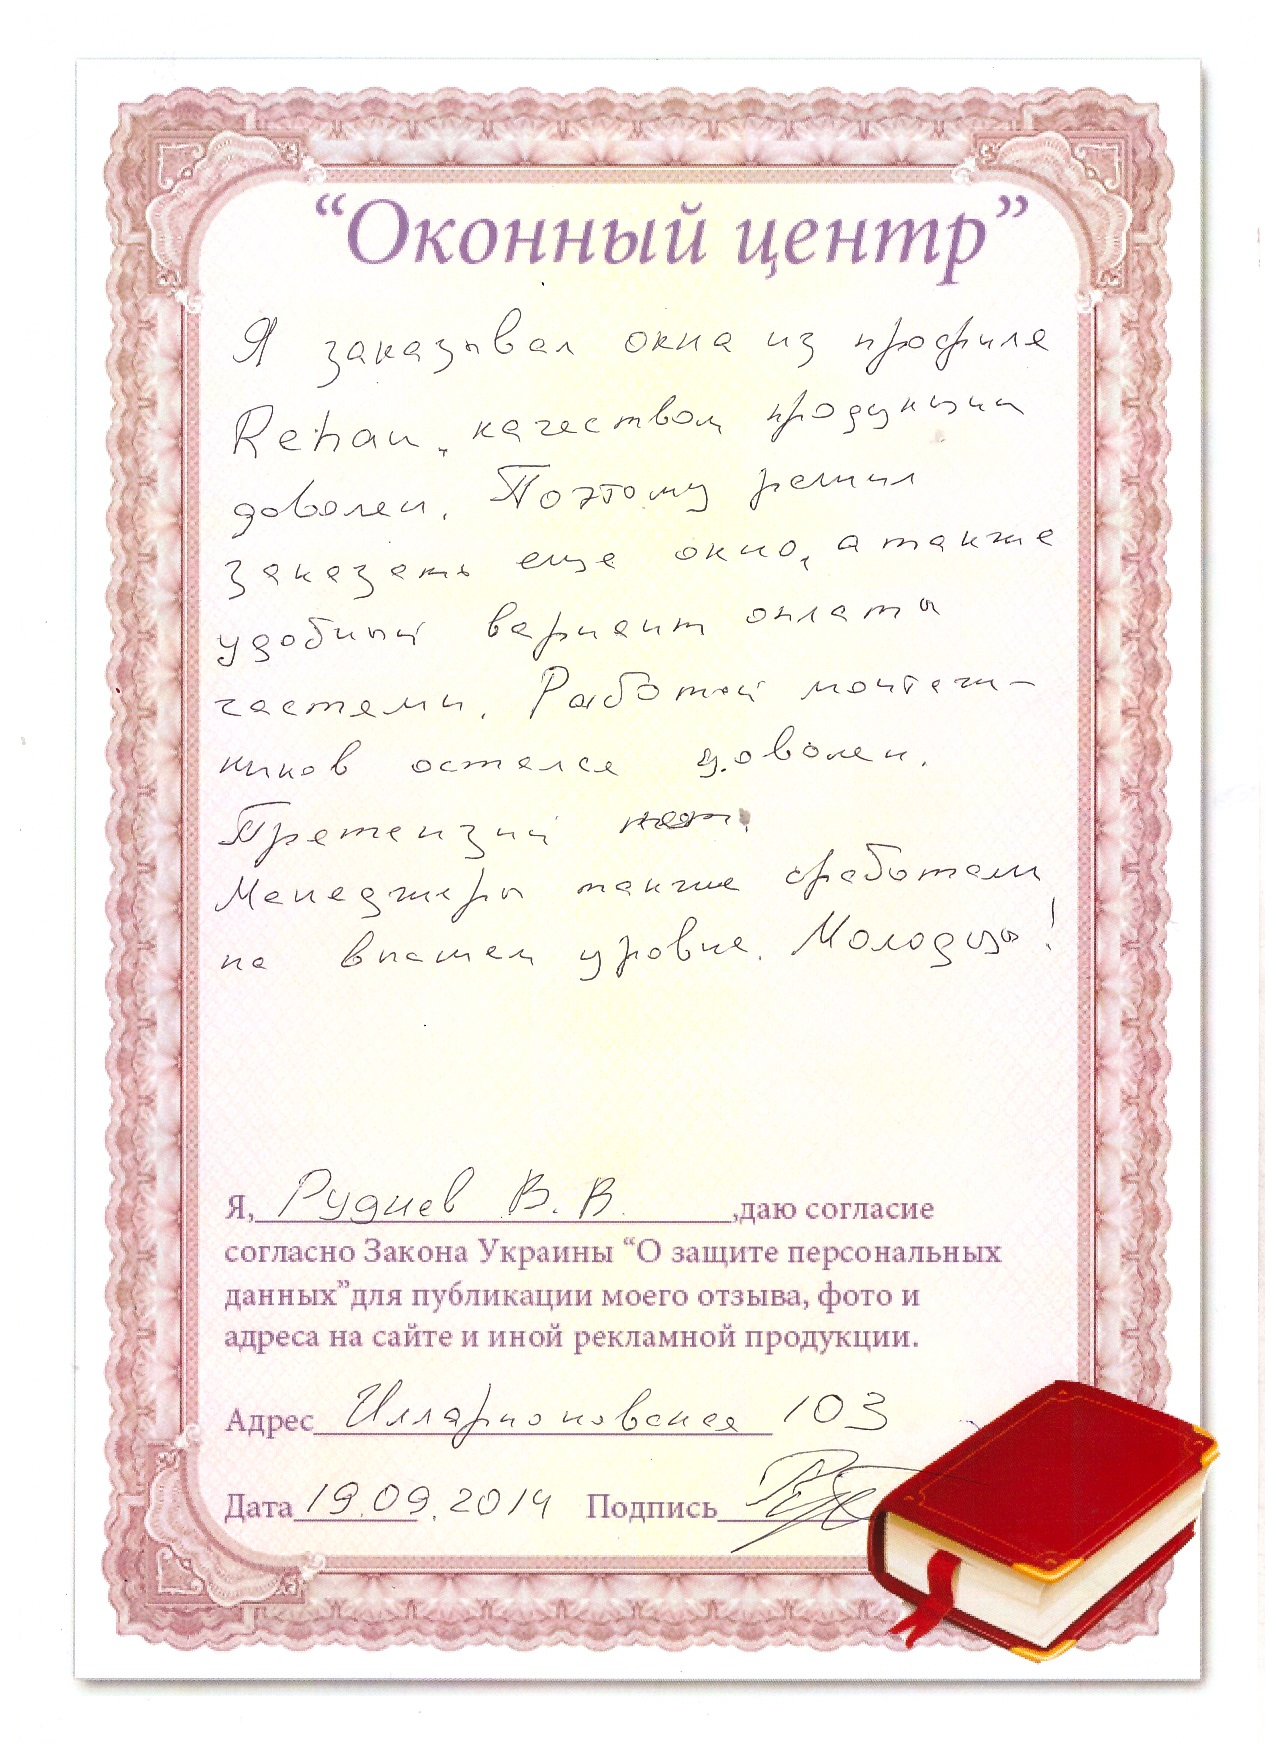 “Оконный центр”
Я заказывал окна из профиля
Rehau, качеством продукции
доволен. Поэтому решил
заказать еще окно, а также
удобный вариант оплаты
частями. Работой монтаж-
ников остался доволен.
Претензий нет.
Менеджеры также сработали
на высшем уровне. Молодцы!
Я, Руднев В. В. ,даю согласие
согласно Закона Украины “О защите персональных
данных”для публикации моего отзыва, фото и
адреса на сайте и иной рекламной продукции.
Адрес Илларионовская 103
Дата 19.09.2014 Подпись